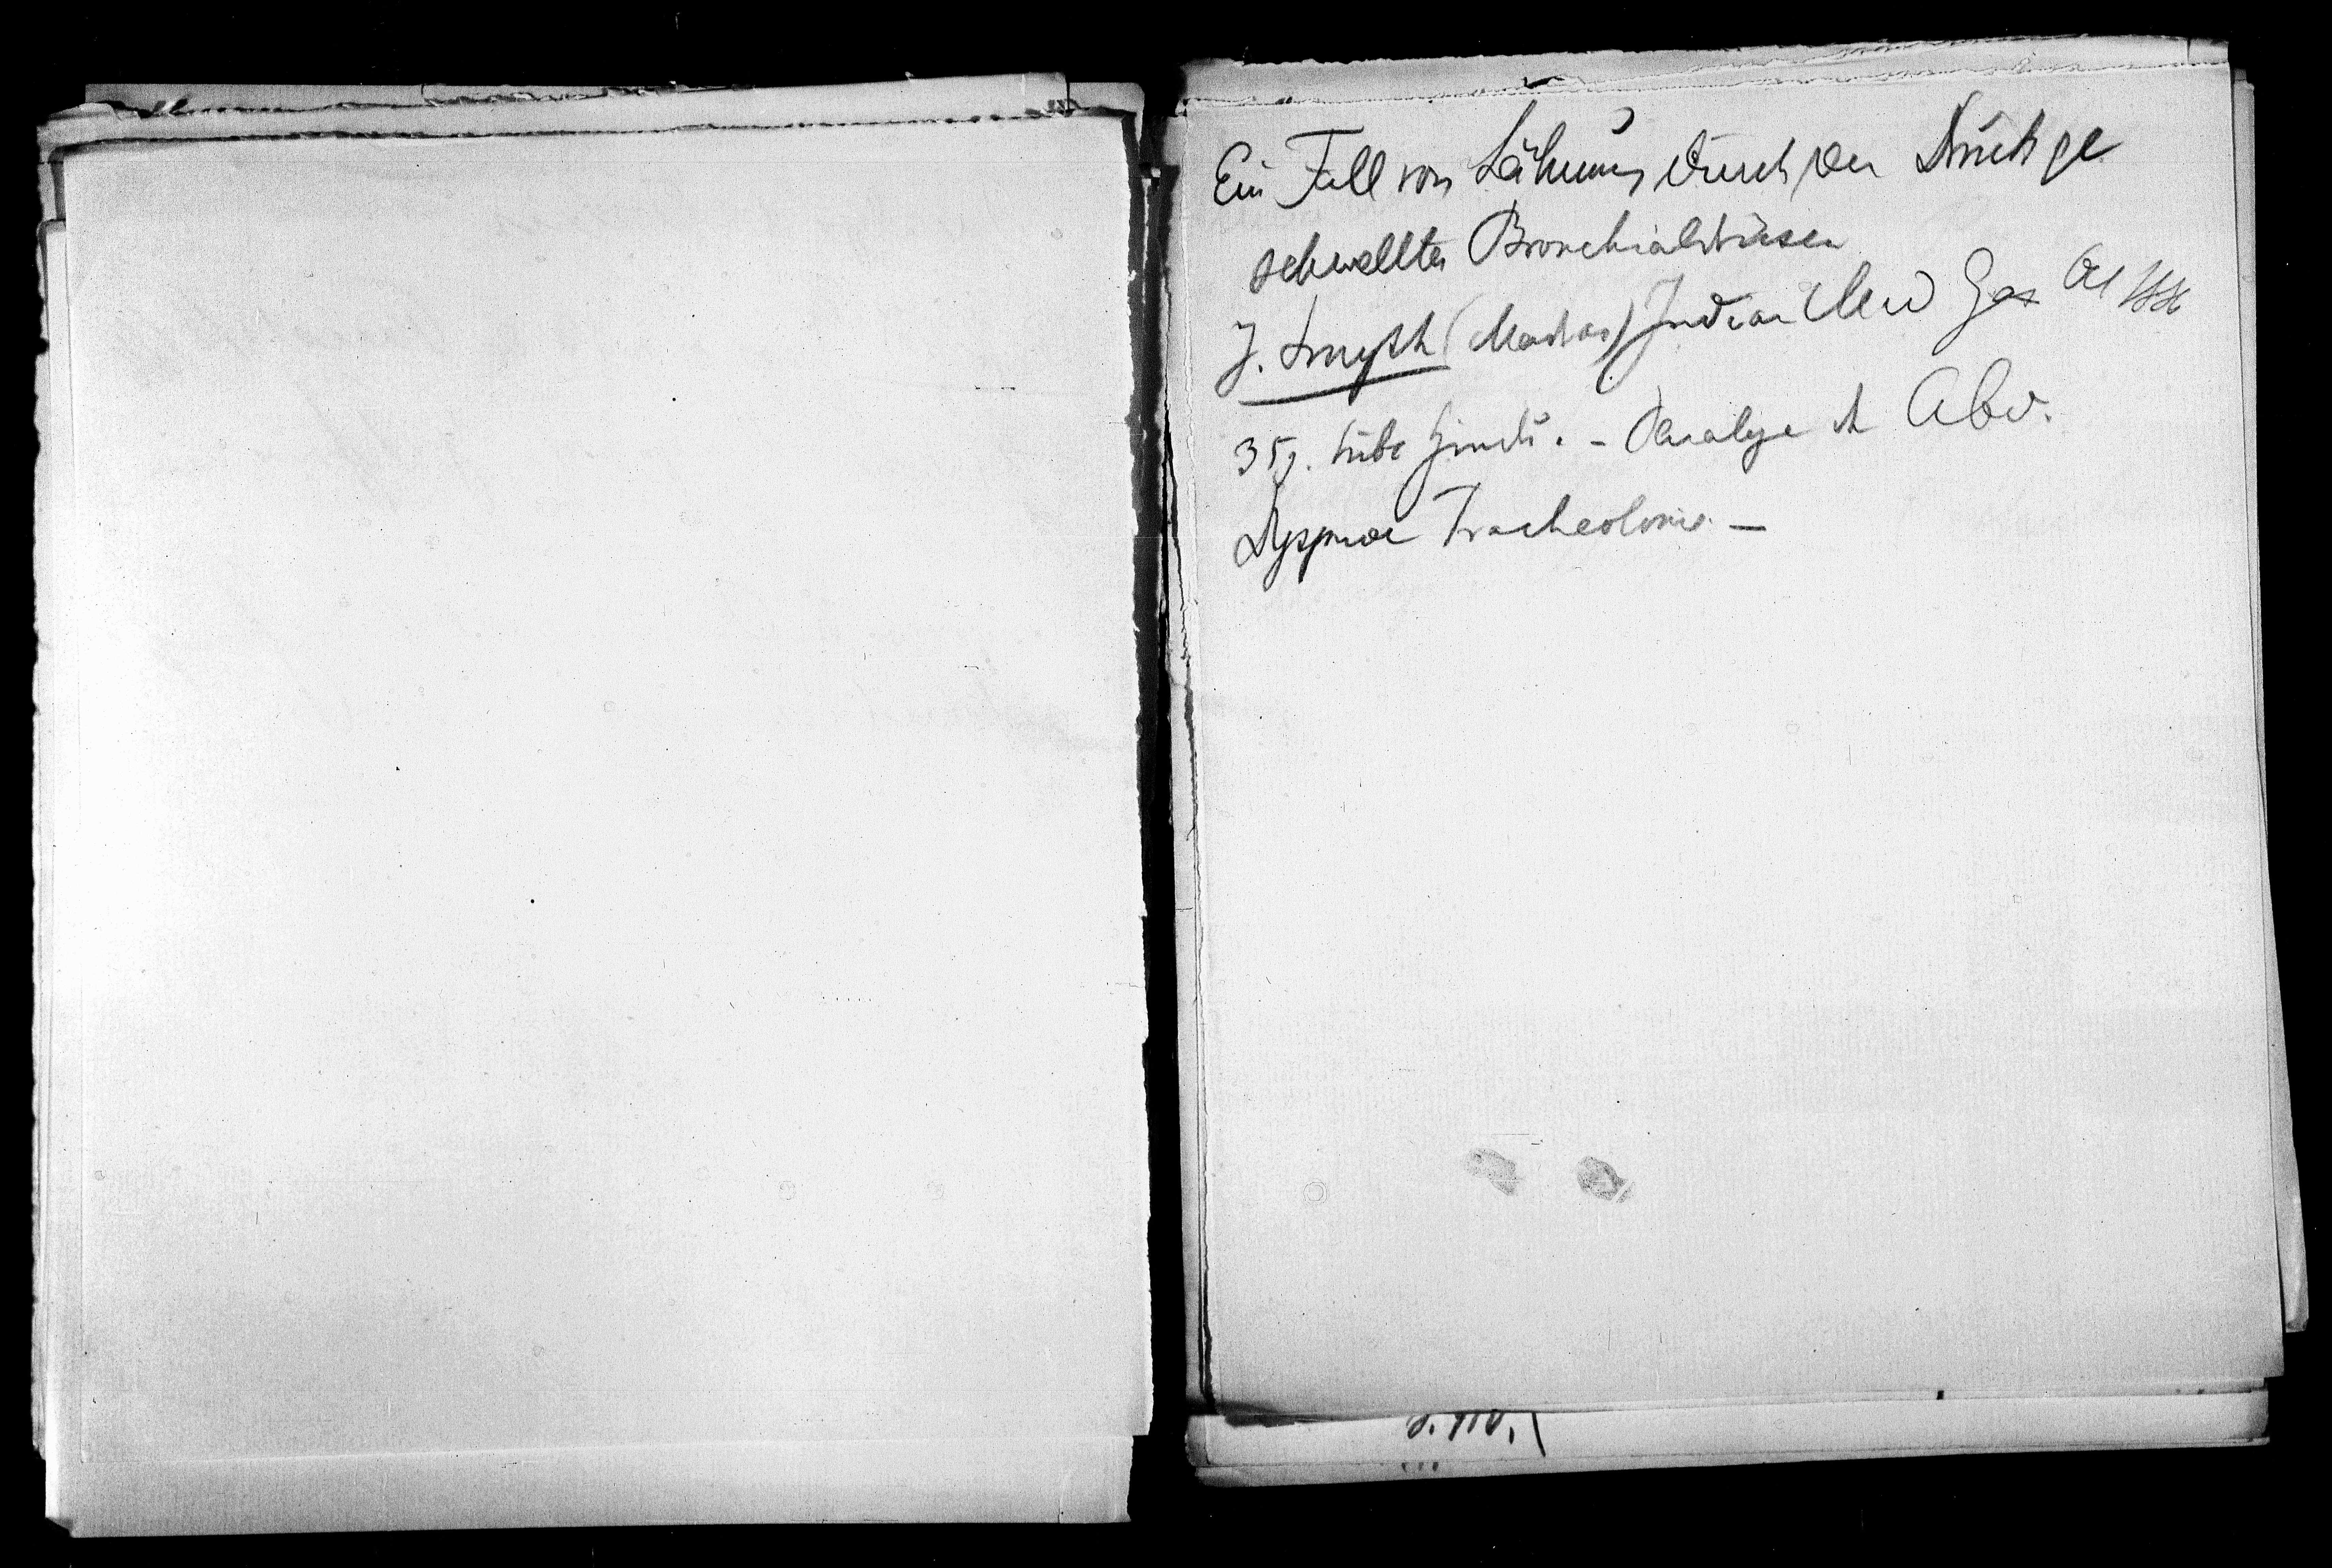 Ein Fall von Lähmung durch den Druck ge
schwellter Bronchialdrüsen
J. Smyth (Madras) Indian Med Gaz
35j. Hindu. - Paralyse d Abd.
Dyspnoe Tracheotomie. —